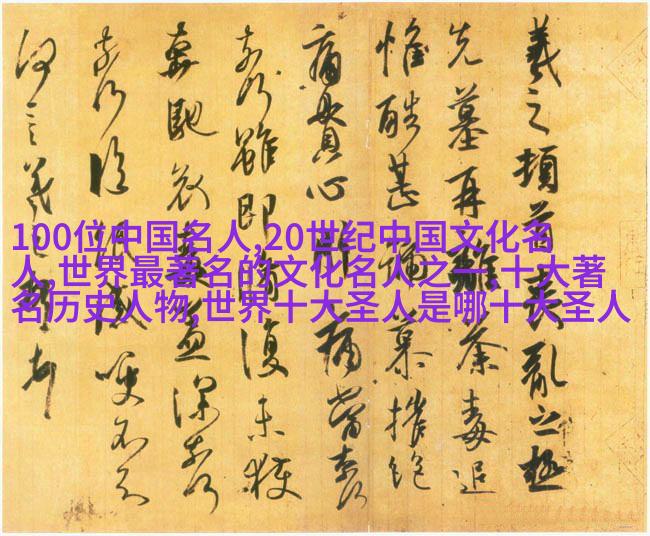 100位中国名人,20世纪中国文化名
人,世界最著名的文化名人之一,十大著
名历史人物,世界十大圣人是哪十大圣人
羲之頓首喪亂之極
先墓再離荼毒追
惟酷甚號慕摧絕
痛貫心肝痛當奈何
奈何雖即脩復未獲
奔馳哀毒益深奈何
奈何臨紙感哽不知
何言羲之頓首頓首